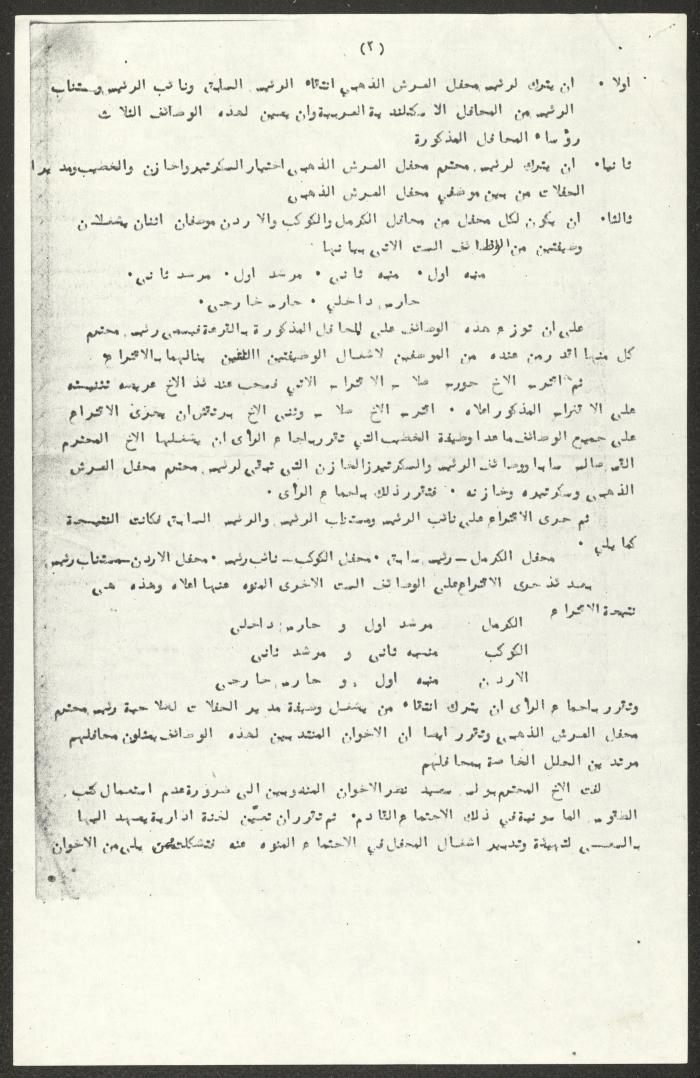 (٢)
اولا ٠ ان يترك لرئيس محفل العرش الذهبي انتقاء الرئيس السابق ونائب الرئيس ومستناب
الرئيس من المحافل الاسكتلندية العربية وان يعين لهذه الوظائف الثلاث
رؤساء المحافل المذكورة
ثانيا٠ ان يترك لرئيس محترم محفل العرش الذهبي اختيار السكرتير والخازن والخطيب ومدير
الحفلات من بين موظفي محفل العرش الذهبي
ثالثا٠ ان يكون لكل محفل من محافل الكرمل والكوكب والاردن موظفان اثنان يشغلان
وظيفتين من الوظائف الست الاتي بيانها
منبه اول٠ منبه ثاني ٠ مرشد اول٠ مرشد ثاني٠
حارس داخلي ٠ حارس خارجي٠
على ان توزع هذه الوظائف على المحافل المذكورة بالقرعة فيسمي رئيس محترم
كل منها اثنين من عنده من الموظفين لاشغال الوظيفتين اللتين ينالهما بالاقتراع
ثم اقترح الاخ جورج الاقتراح الاتي عندئذ الاخ تثنيته
على الاقتراح المذكور اعلاه ٠ اقترح الاخ وثنى الاخ ان يجرى الاقتراع
على جميع الوظائف ماعدا وظيفة الخطيب التي تقرر باجماع الرأى ان يشغلها الاخ المحترم
سابا ووظائف الرئيس والسكرتير والخازن التي تبقى لرئيس محترم محفل العرش
الذهبي وسكرتيره وخازنه ٠ فتقرر ذلك باجماع الرأى ٠
ثم جرى الاقتراع على نائب الرئيس ومستناب الرئيس والرئيس السابق فكانت النتيجة
كما يلي ٠
محفل الكرمل – رئيس سابق ٠ محفل الكوكب – نائب رئيس ٠ محفل الاردن – مستناب رئيس
بعدئذ جرى الاقتراع على الوظائف الست الاخرى المنوه عنها اعلاه وهذه هي
نتيجة الاقتراع
الكرمل مرشد اول و حارس داخلي
الكوكب منبه ثاني و مرشد ثاني
الاردن منبه اول و حارس خارجي
وتقرر باجماع الرأى ان يترك انتقاء من يشغل وظيفة مدير الحفلات لصلاحية رئيس محترم
محفل العرش الذهبي وتقرر ايضا ان الاخوان المنتدبين لهذه الوظائف يمثلون محافلهم
مرتدين الحلل الخاصة بمحافلهم
لفت الاخ المحترم بولس سعيد نظر الاخوان المندوبين الى ضرورة عدم استعمال كتب
الطقوس الماسونية في ذلك الاجتماع القادم٠ ثم تقرر ان تعين لجنة ادارية يعهد اليها
بالسعي لتهيئة وتدبير اشغال المحفل في الاجتماع المنوه عنه فتشكلت ممن يلي من الاخوان